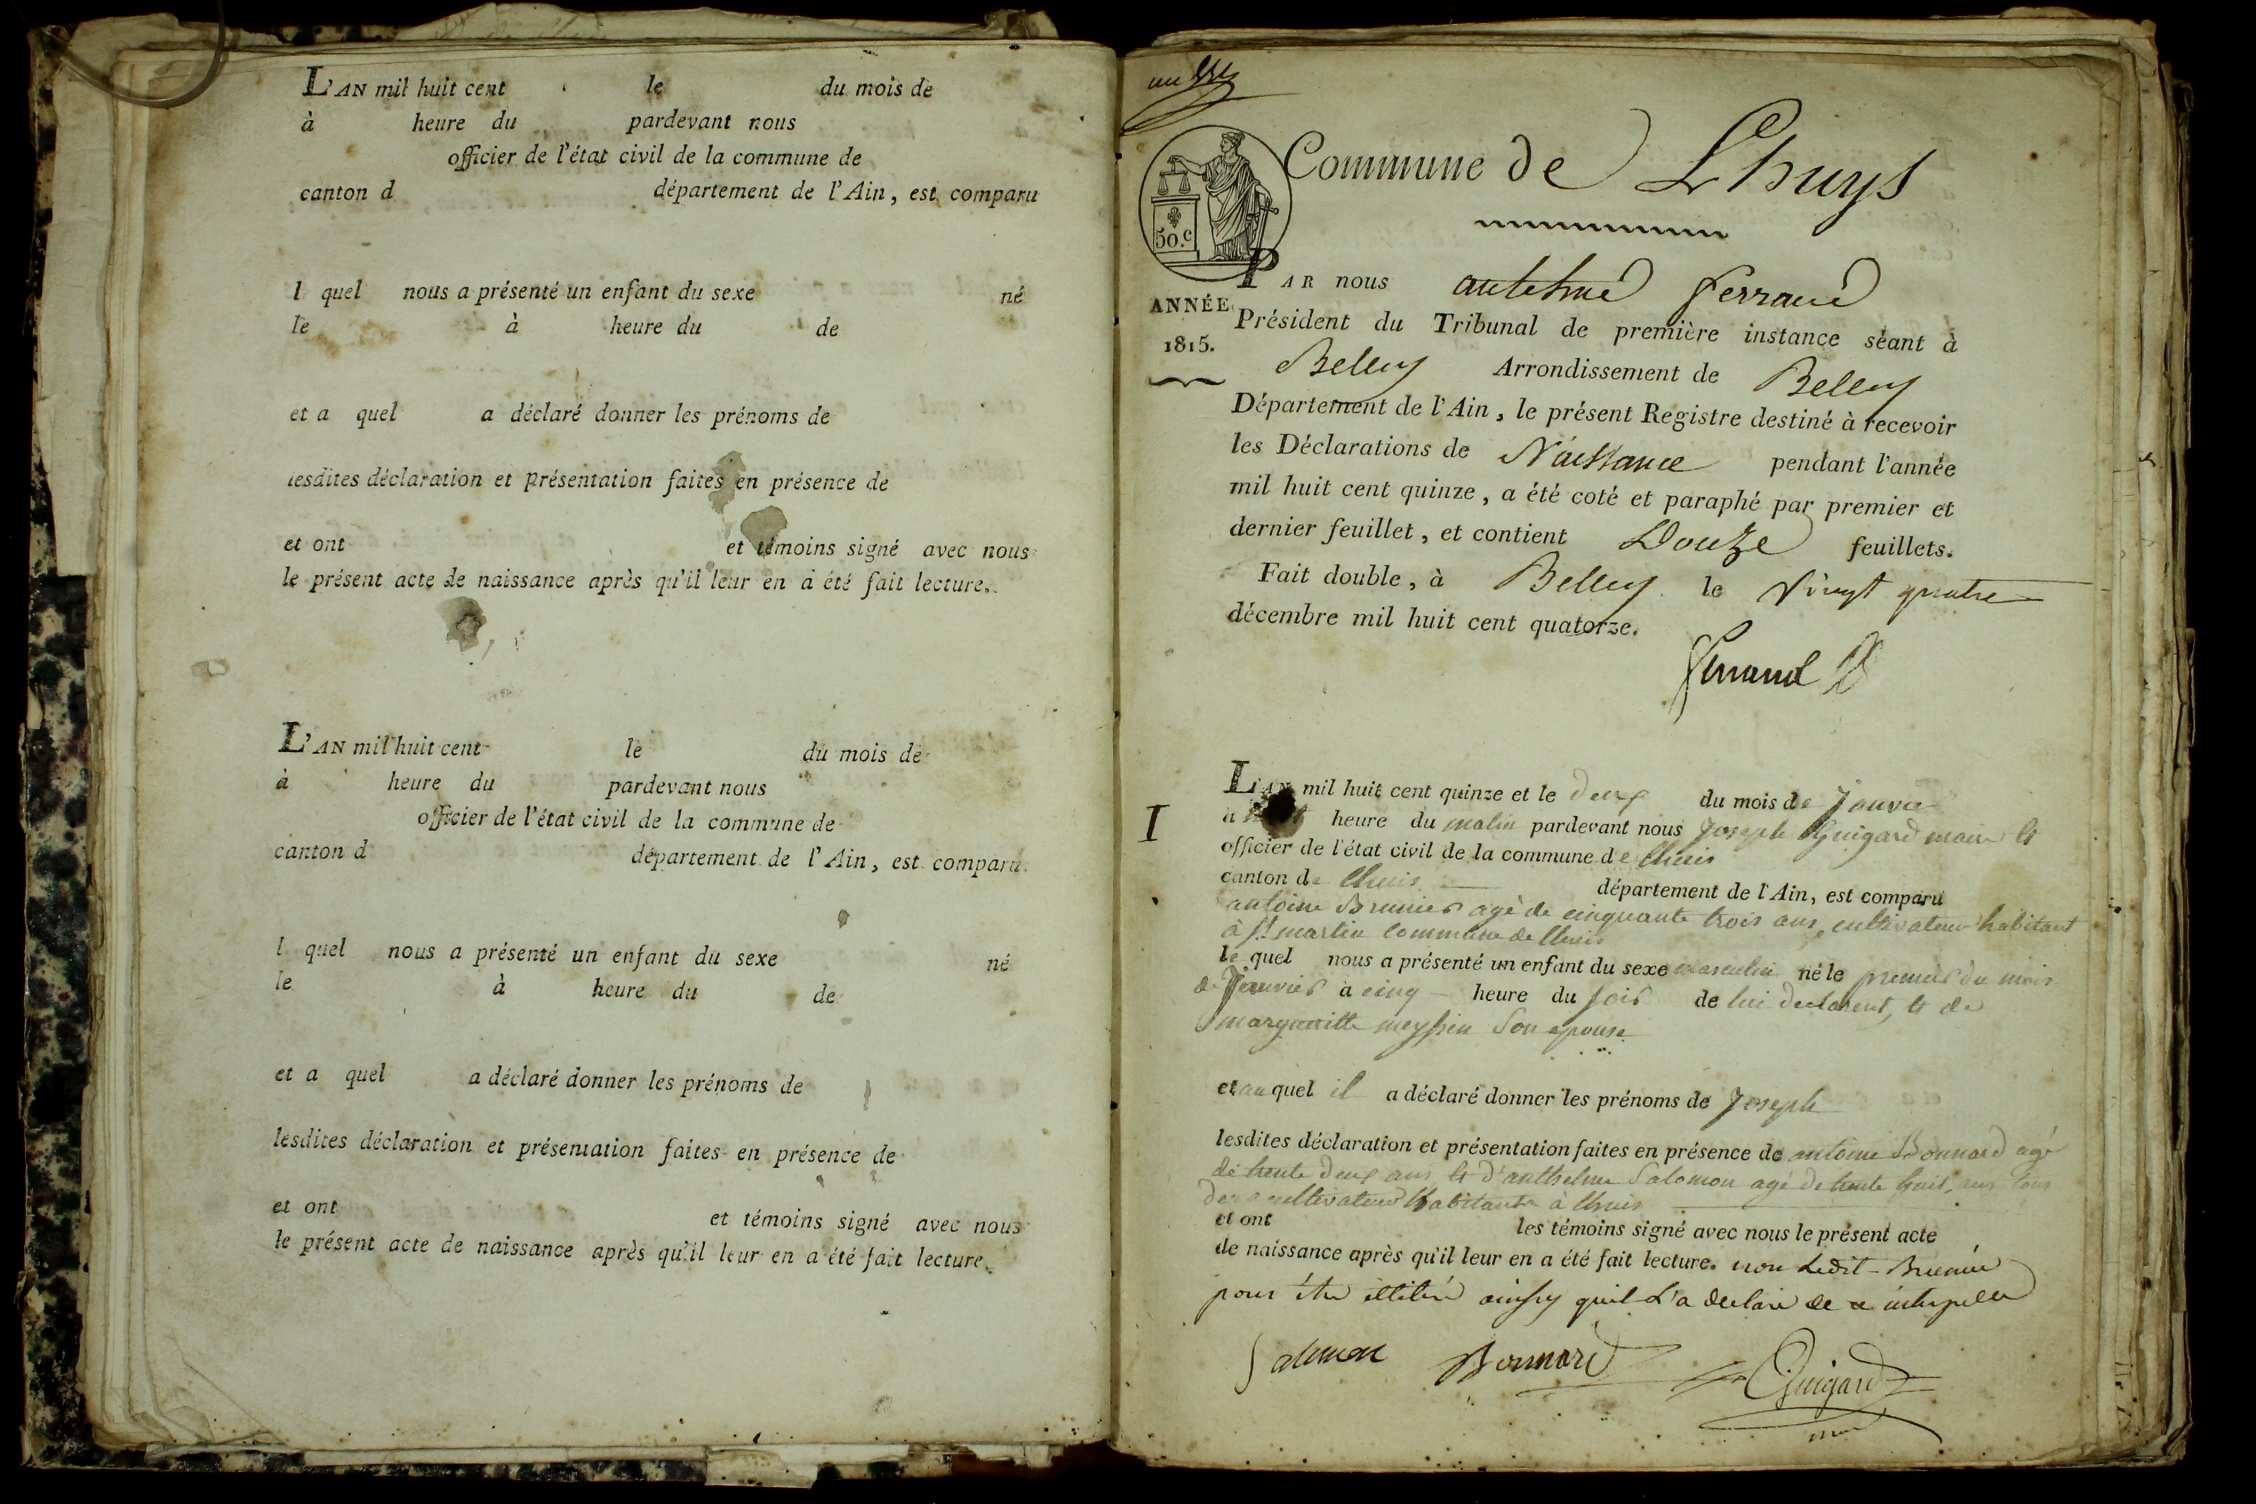 L'AN mil huit cent le du mois de
à heure du pardevant nous
officier de l'état civil de la commune de
canton d département de l'Ain, est comparu
l quel nous a présenté un enfant du sexe né
le à heure du de
et a quel a déclaré donner les prénoms de
lesdites déclaration et présentation faites en présence de
et ont et témoins signé avec nous
le présent acte de naissance après qu'il leur en a été fait lecture.
L'AN mil huit cent le du mois de
à heure du pardevant nous
officier de l'état civil de la commune de
canton d département de l'Ain, est comparu
l quel nous a présenté un enfant du sexe né
le à heure du de
et a quel a déclaré donner les prénoms de
lesdites déclaration et présentation faites en présence de
et ont et témoins signé avec nous
le présent acte de naissance après qu'il leur en a été fait lecture.
Commune de Lhuys
50.c
PAR nous antelme ferrand
ANNÉE
1815.
Président du Tribunal de première instance séant à
Belley Arrondissement de Belley
Département de l'Ain, le présent Registre destiné à recevoir
les Déclarations de Naissance pendant l'année
mil huit cent quinze, a été coté et paraphé par premier et
dernier feuillet, et contient Douze feuillets.
Fait double, à Belley le vingt quatre
décembre mil huit cent quatorze.
ferrand
I
L'AN mil huit cent quinze et le deux du mois de Janvier
à heure du matin pardevant nous Joseph Guigard maire et
officier de l'état civil de la commune de lhuis
canton de lhuis département de l'Ain, est comparu
antoine Brunier agé de cinquante trois ans, cultivateur habitant
à st martin commune de lhuis
le quel nous a présenté un enfant du sexe masculin né le premier du mois
de Janvier à cinq heure du soir de lui declarent, et de
margueritte meyssin son epouse
et au quel il a déclaré donner les prénoms de Joseph
lesdites déclaration et présentation faites en présence de antoine Bonnard agé
de trente deux ans, et d'anthelme Salomon agé de trente huit ans tous
deux cultivateur habitants à lhuis
et ont les témoins signé avec nous le présent acte
de naissance après qu'il leur en a été fait lecture. non Ledit Brunier
pour être illitéré ainsy quil L'a declaré de ce interpellé
Salomon Bonnard Guigard